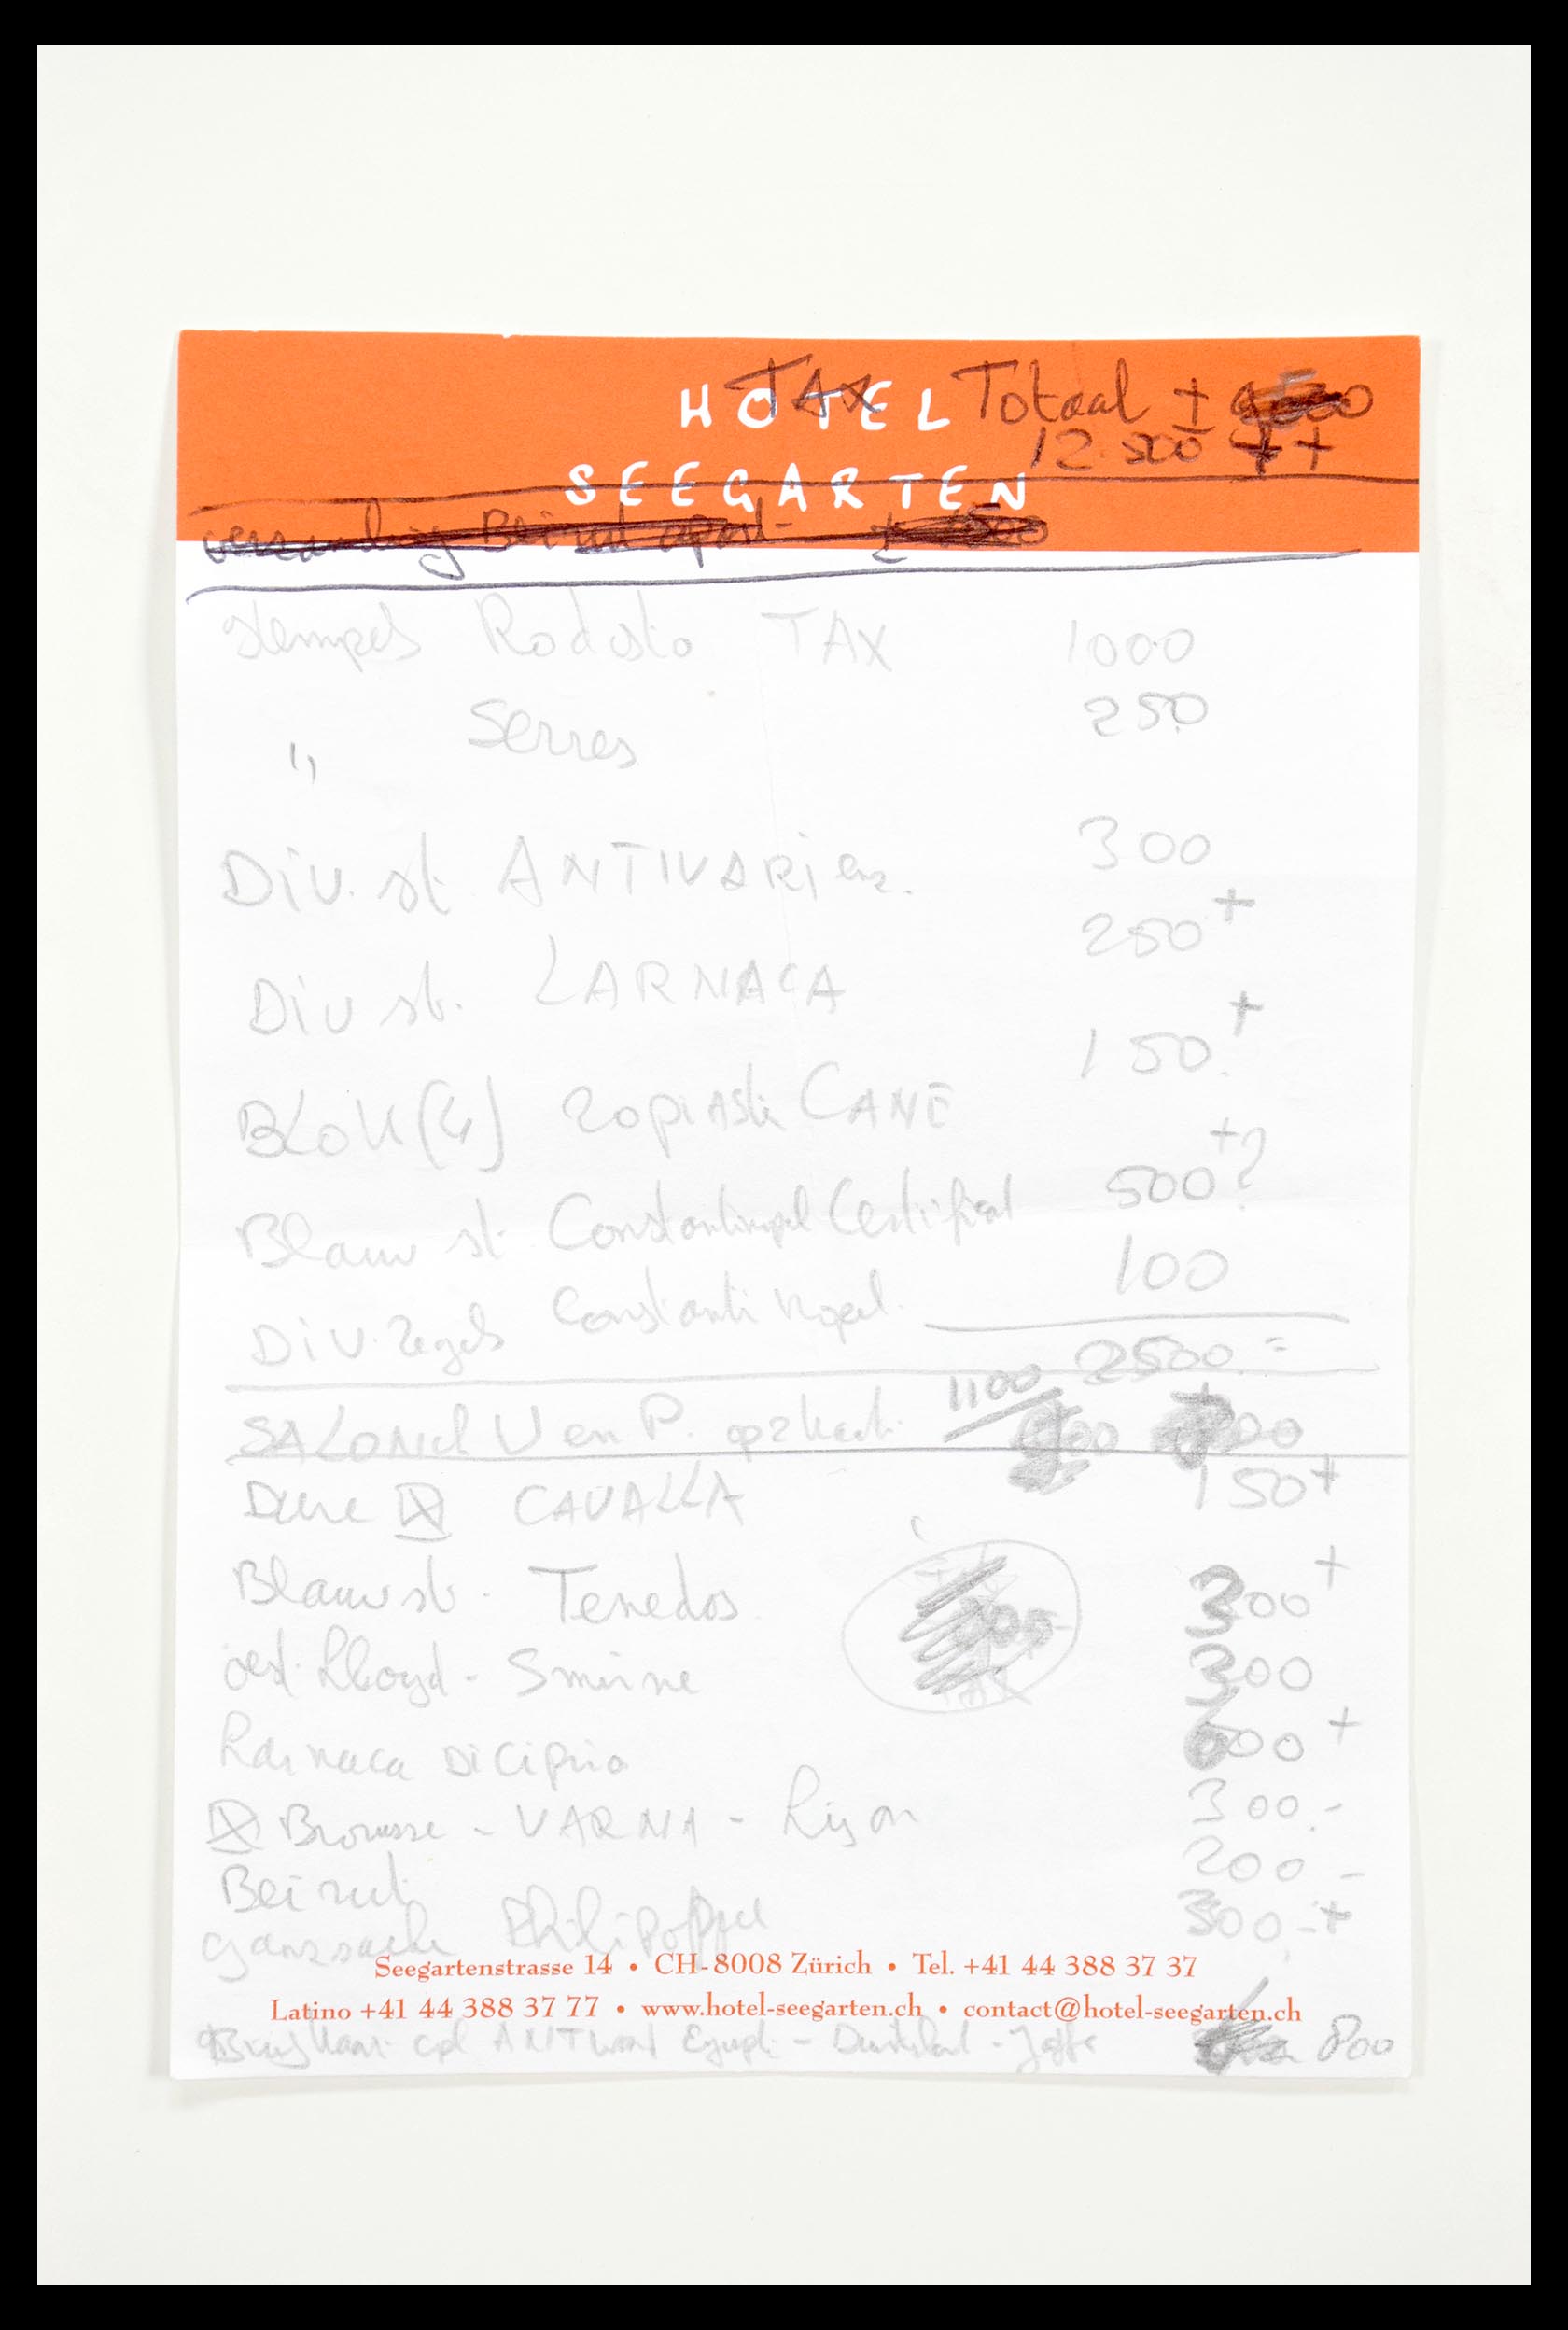 HOTEL
TAX Totaal ±
12.500 ++
SEEGARTEN
stempels Rodosto TAX 1000
" Serres 250
Div. st. ANTIVARI enz. 300
Div st. LARNACA 250 +
BLOK (4) 20 piaster CANE 150. +
Blauw st. Constantinopel Certificat 500 +?
Div. Zegels Constantinopel. 100
2500 =
SALONICH U en P. op 2 kaart. 1100
Dure CAVALLA 150+
Blauw st. Tenedos 300 +
oest. Lloyd - Smirne 300
Larnaca Di Cipria 600 +
Brousse - VARNA - 300.-
Beirut 200 -
ganzsache Philipoppel 300 -+
Seegartenstrasse 14 • CH-8008 Zürich • Tel. +41 44 388 37 37
Latino +41 44 388 37 77 • www.hotel-seegarten.ch • contact@hotel-seegarten.ch
cpl ANTWoord Egypt - - Jaffa 800